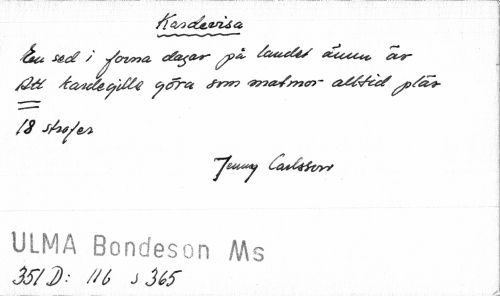 Kardevisa
En sed i forna dagar på landet ännu är
Att kardegille göra som matmor alltid plär
18 strofer
Jenny Carlsson
ULMA Bondeson Ms
351 D: 116 s 365